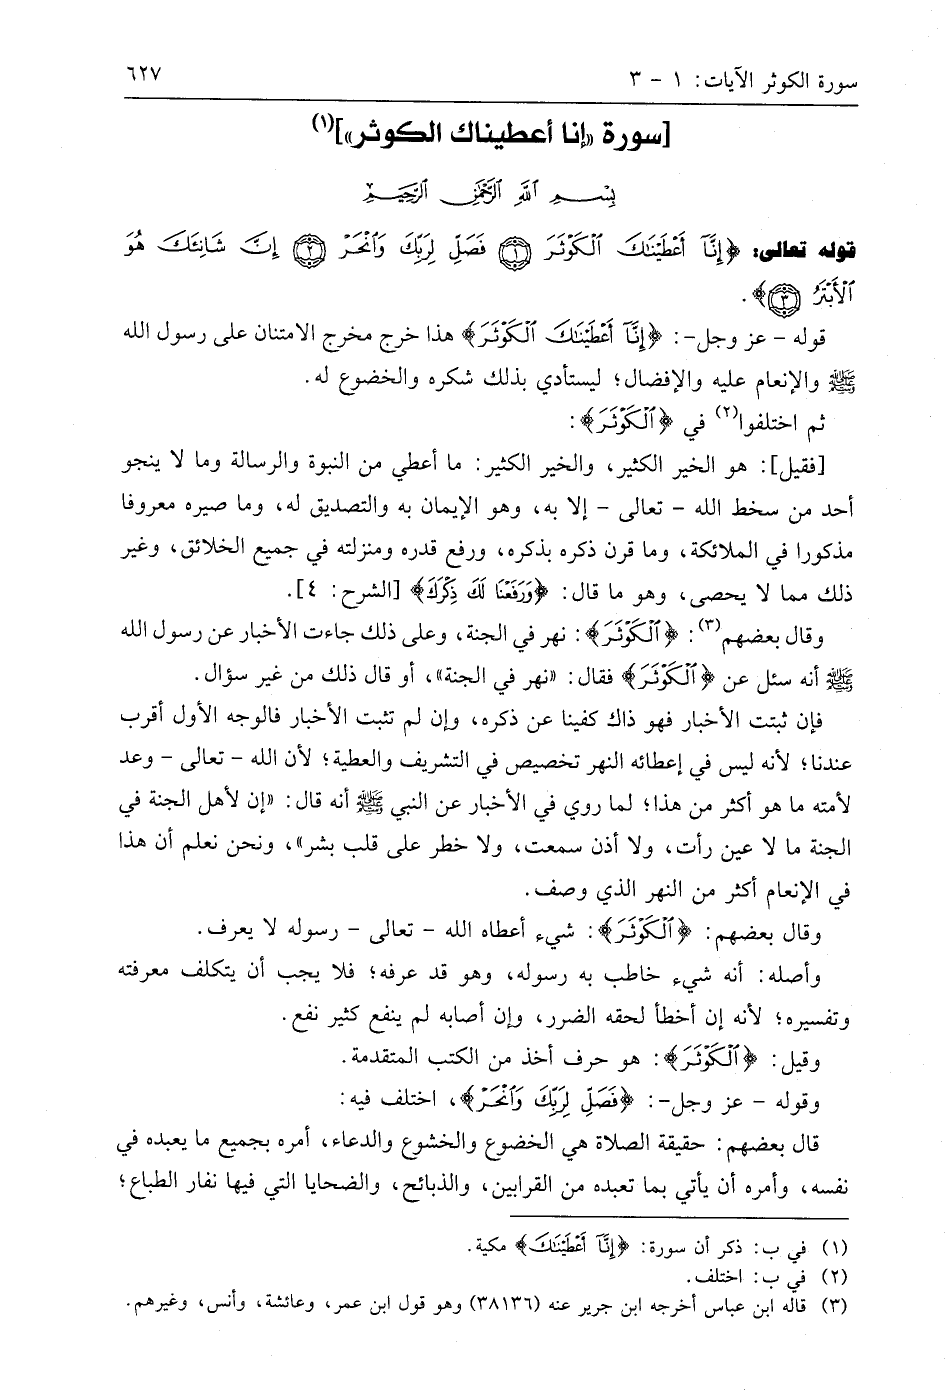 سورة الكوثر الآيات: ١ - ٣
٦٢٧
[سورة «إنا أعطيناك الكوثر»](١)
بِسْمِ اللَّهِ الرَّحْمَٰنِ الرَّحِيمِ
قوله تعالى: ﴿إِنَّآ أَعْطَيْنَٰكَ ٱلْكَوْثَرَ ١ فَصَلِّ لِرَبِّكَ وَٱنْحَرْ ٢ إِنَّ شَانِئَكَ هُوَ
ٱلْأَبْتَرُ ٣﴾.
قوله - عز وجل-: ﴿إِنَّآ أَعْطَيْنَٰكَ ٱلْكَوْثَرَ﴾ هذا خرج مخرج الامتنان على رسول الله
ﷺ والإنعام عليه والإفضال؛ ليستأدي بذلك شكره والخضوع له.
ثم اختلفوا(٢) في ﴿ٱلْكَوْثَرَ﴾:
[فقيل]: هو الخير الكثير، والخير الكثير: ما أعطي من النبوة والرسالة وما لا ينجو
أحد من سخط الله - تعالى - إلا به، وهو الإيمان به والتصديق له، وما صيره معروفا
مذكورا في الملائكة، وما قرن ذكره بذكره، ورفع قدره ومنزلته في جميع الخلائق، وغير
ذلك مما لا يحصى، وهو ما قال: ﴿وَرَفَعْنَا لَكَ ذِكْرَكَ﴾ [الشرح: ٤].
وقال بعضهم(٣): ﴿ٱلْكَوْثَرَ﴾: نهر في الجنة، وعلى ذلك جاءت الأخبار عن رسول الله
ﷺ أنه سئل عن ﴿ٱلْكَوْثَرَ﴾ فقال: «نهر في الجنة»، أو قال ذلك من غير سؤال.
فإن ثبتت الأخبار فهو ذاك كفينا عن ذكره، وإن لم تثبت الأخبار فالوجه الأول أقرب
عندنا؛ لأنه ليس في إعطائه النهر تخصيص في التشريف والعطية؛ لأن الله - تعالى - وعد
لأمته ما هو أكثر من هذا؛ لما روي في الأخبار عن النبي ﷺ أنه قال: «إن لأهل الجنة في
الجنة ما لا عين رأت، ولا أذن سمعت، ولا خطر على قلب بشر»، ونحن نعلم أن هذا
في الإنعام أكثر من النهر الذي وصف.
وقال بعضهم: ﴿ٱلْكَوْثَرَ﴾: شيء أعطاه الله - تعالى - رسوله لا يعرف.
وأصله: أنه شيء خاطب به رسوله، وهو قد عرفه؛ فلا يجب أن يتكلف معرفته
وتفسيره؛ لأنه إن أخطأ لحقه الضرر، وإن أصابه لم ينفع كثير نفع.
وقيل: ﴿ٱلْكَوْثَرَ﴾: هو حرف أخذ من الكتب المتقدمة.
وقوله - عز وجل-: ﴿فَصَلِّ لِرَبِّكَ وَٱنْحَرْ﴾، اختلف فيه:
قال بعضهم: حقيقة الصلاة هي الخضوع والخشوع والدعاء، أمره بجميع ما يعبده في
نفسه، وأمره أن يأتي بما تعبده من القرابين، والذبائح، والضحايا التي فيها نفار الطباع؛
(١) في ب: ذكر أن سورة: ﴿إِنَّآ أَعْطَيْنَٰكَ﴾ مكية.
(٢) في ب: اختلف.
(٣) قاله ابن عباس أخرجه ابن جرير عنه (٣٨١٣٦) وهو قول ابن عمر، وعائشة، وأنس، وغيرهم.